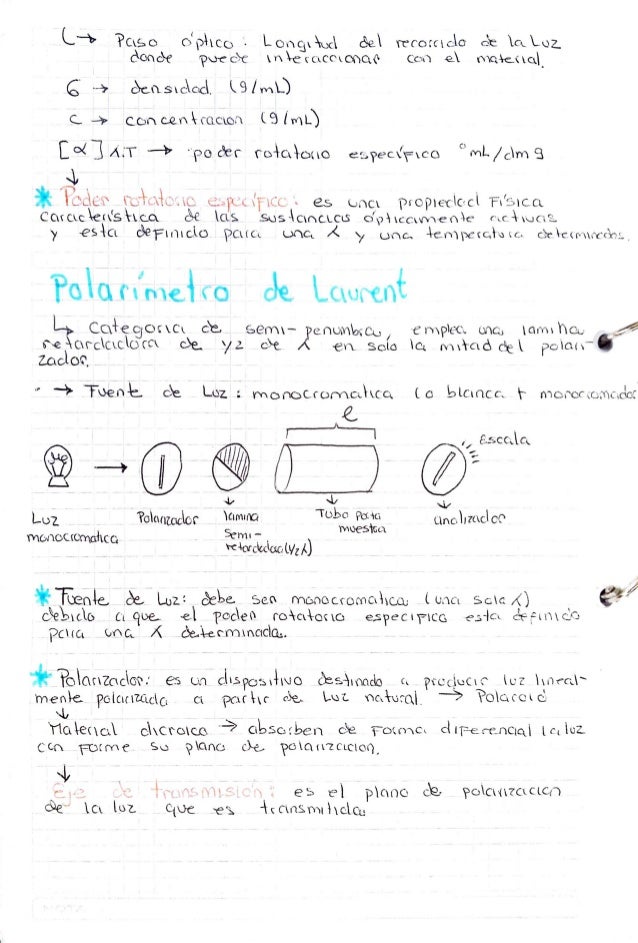 ↳ Paso óptico: Longitud del recorrido de la Luz
donde puede interaccionar con el material.
δ → densidad. (g/mL)
C → concentracion (g/mL)
[α] λ.T → poder rotatorio específico °mL/dm g
↓
* Poder rotatorio específico: es una propiedad Física
característica de las sustancias ópticamente activas
y esta definido para una λ y una temperatura determinadas.
Polarímetro de Laurent
↳ Categoria de semi-penumbra, emplea una lamina
retardadora de 1/2 de λ en solo la mitad del polari-
zador.
→ Fuente de Luz: monocromatica (o blanca + monocromador
e
Escala
Luz
monocromatica
Polarizador
lamina
semi-
retardadac(1/2 λ)
Tubo porta
muestra
analizador
* Fuente de Luz: debe ser monocromatica (una sola λ)
debido a que el poder rotatorio especifico esta definido
para una λ determinada.
* Polarizador: es un dispositivo destinado a producir luz lineal-
mente polarizada a partir de Luz natural. → Polaroid
↓
Material dicroico → absorben de Forma diferencial la luz
con forme su plano de polarizacion.
↓
Eje de transmisión: es el plano de polarizacion
de la luz que es transmitida